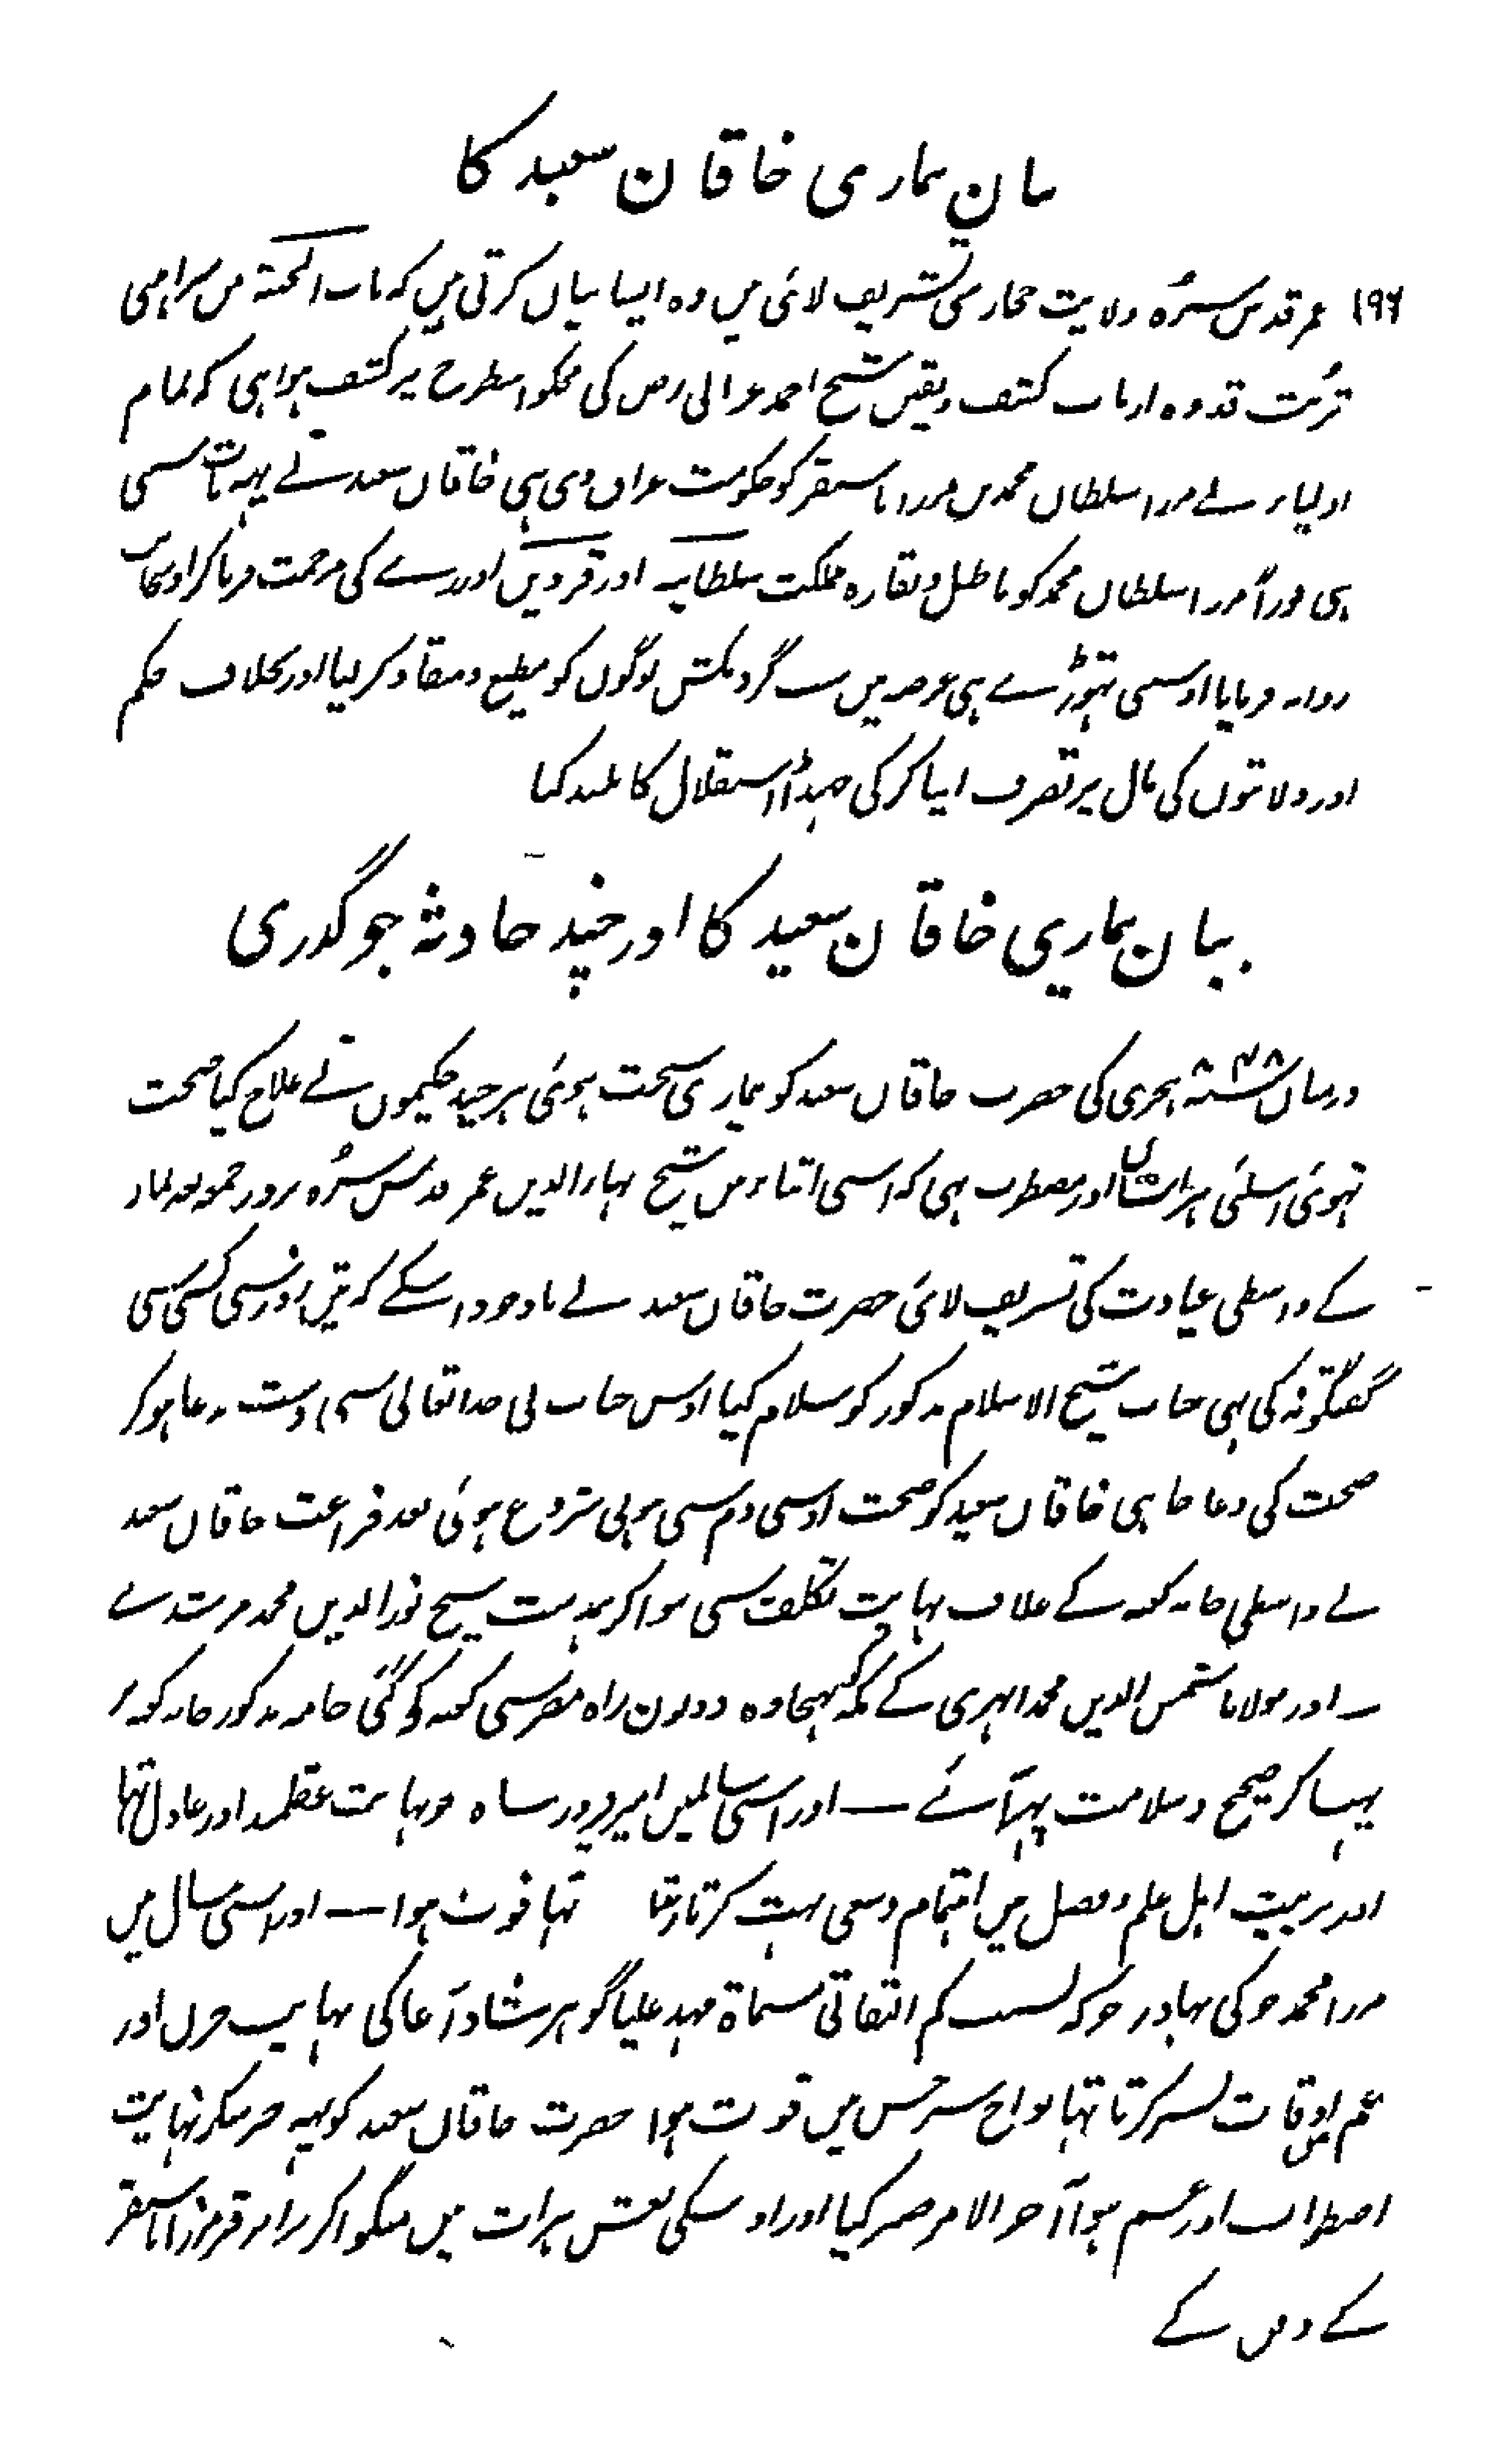 بیان بیماری خاقان سعید کا
۱۹۶ عمر قدس سرُہ ولایت بخارسی تشریف لائی ہیں وہ ایسا بیاں کرتی ہیں کہ باب الجنۃ میں سرہامی
تُربت قدوہ ارباب کشف ویقین شیخ احمد غزالی رض کی مجکو اسطرح پر کشف ہوا ہی کہ تمام
اولیاء نے مرزا سلطان محمد بن مرزا بایسنقر کو حکومت عراق دی ہی خاقان سعید نے یہہ بات سنتی
ہی فوراً مرزا سلطان محمد کو باطبل ونقارہ مملکت سلطانیہ اور قزوین اور رے کی مرحمت فرماکر اوسجانب
روانہ فرمایا اوسنی تہوڑے ہی عرصہ میں سب گردنکش لوگوں کو مطیع ومنقاد کرلیا اور بخلاف حکم
اور ولایتوں کی مال پر تصرف اپنا کرکی صداٰ استقلال کا بلند کیا
بیان بیماری خاقان سعید کا اور چند حادثہ جو گذری
درمیان ۸۴۸ سنہ ہجری کی حضرت خاقان سعید کو بیماری سخت ہوئی ہر چند حکیموں نے علاج کیا صحت
نہوئی اسلئی ہراساں اور مضطرب ہی کہ اسی اثناء میں شیخ بہاء الدین عمر قدس سرُہ بروز جمعہ بعد نماز
کے واسطی عیادت کی تشریف لائی حضرت خاقان سعید نے باوجود اسکے کہ تین روز سی کسی سی
گفتگو نہ کی ہی جناب شیخ الاسلام مذکور کو سلام کیا اوس جناب نی خدا تعالی سی دست بدعا ہوکر
صحت کی دعا چاہی خاقان سعید کو صحت اوسی دم سی ہونی شروع ہوئی بعد فراغت خاقان سعید
نے واسطی خانہ کعبہ کے غلاف نہایت تکلف سی بنواکر بدست شیخ نورالدین محمد مرشدے
اور مولانا شمس الدین محمد ابہری کے مکہ کو بہیجا وہ دونوں براہ مصر سی کعبہ کو گئی جامہ مذکور خانہ کعبہ پر
پہناکر صحیح وسلامت پہر آئے — اور اسی سالمیں امیر فیروز شاہ جو نہایت عقلمند اور عادل تہا
اور تربیت اہل علم وفضل میں اہتمام وسعی بہت کرتا رہتا تہا فوت ہوا — اور اسی سال میں
مرزا محمد جوکی بہادر جوکہ بسبب کم التفاتی مسماۃ مہد علیا گوہر شاد آغا کی نہایت حزن اور
غم میں اوقات بسر کرتا تہا نواح سرخس میں فوت ہوا حضرت خاقان سعید کو یہہ خبر سنکر نہایت
اضطراب اور غم ہوا آخر الامر صبر کیا اور اوسکی نعش ہرات میں منگواکر برابر قبر مرزا بایسنقر
کے دفن کے